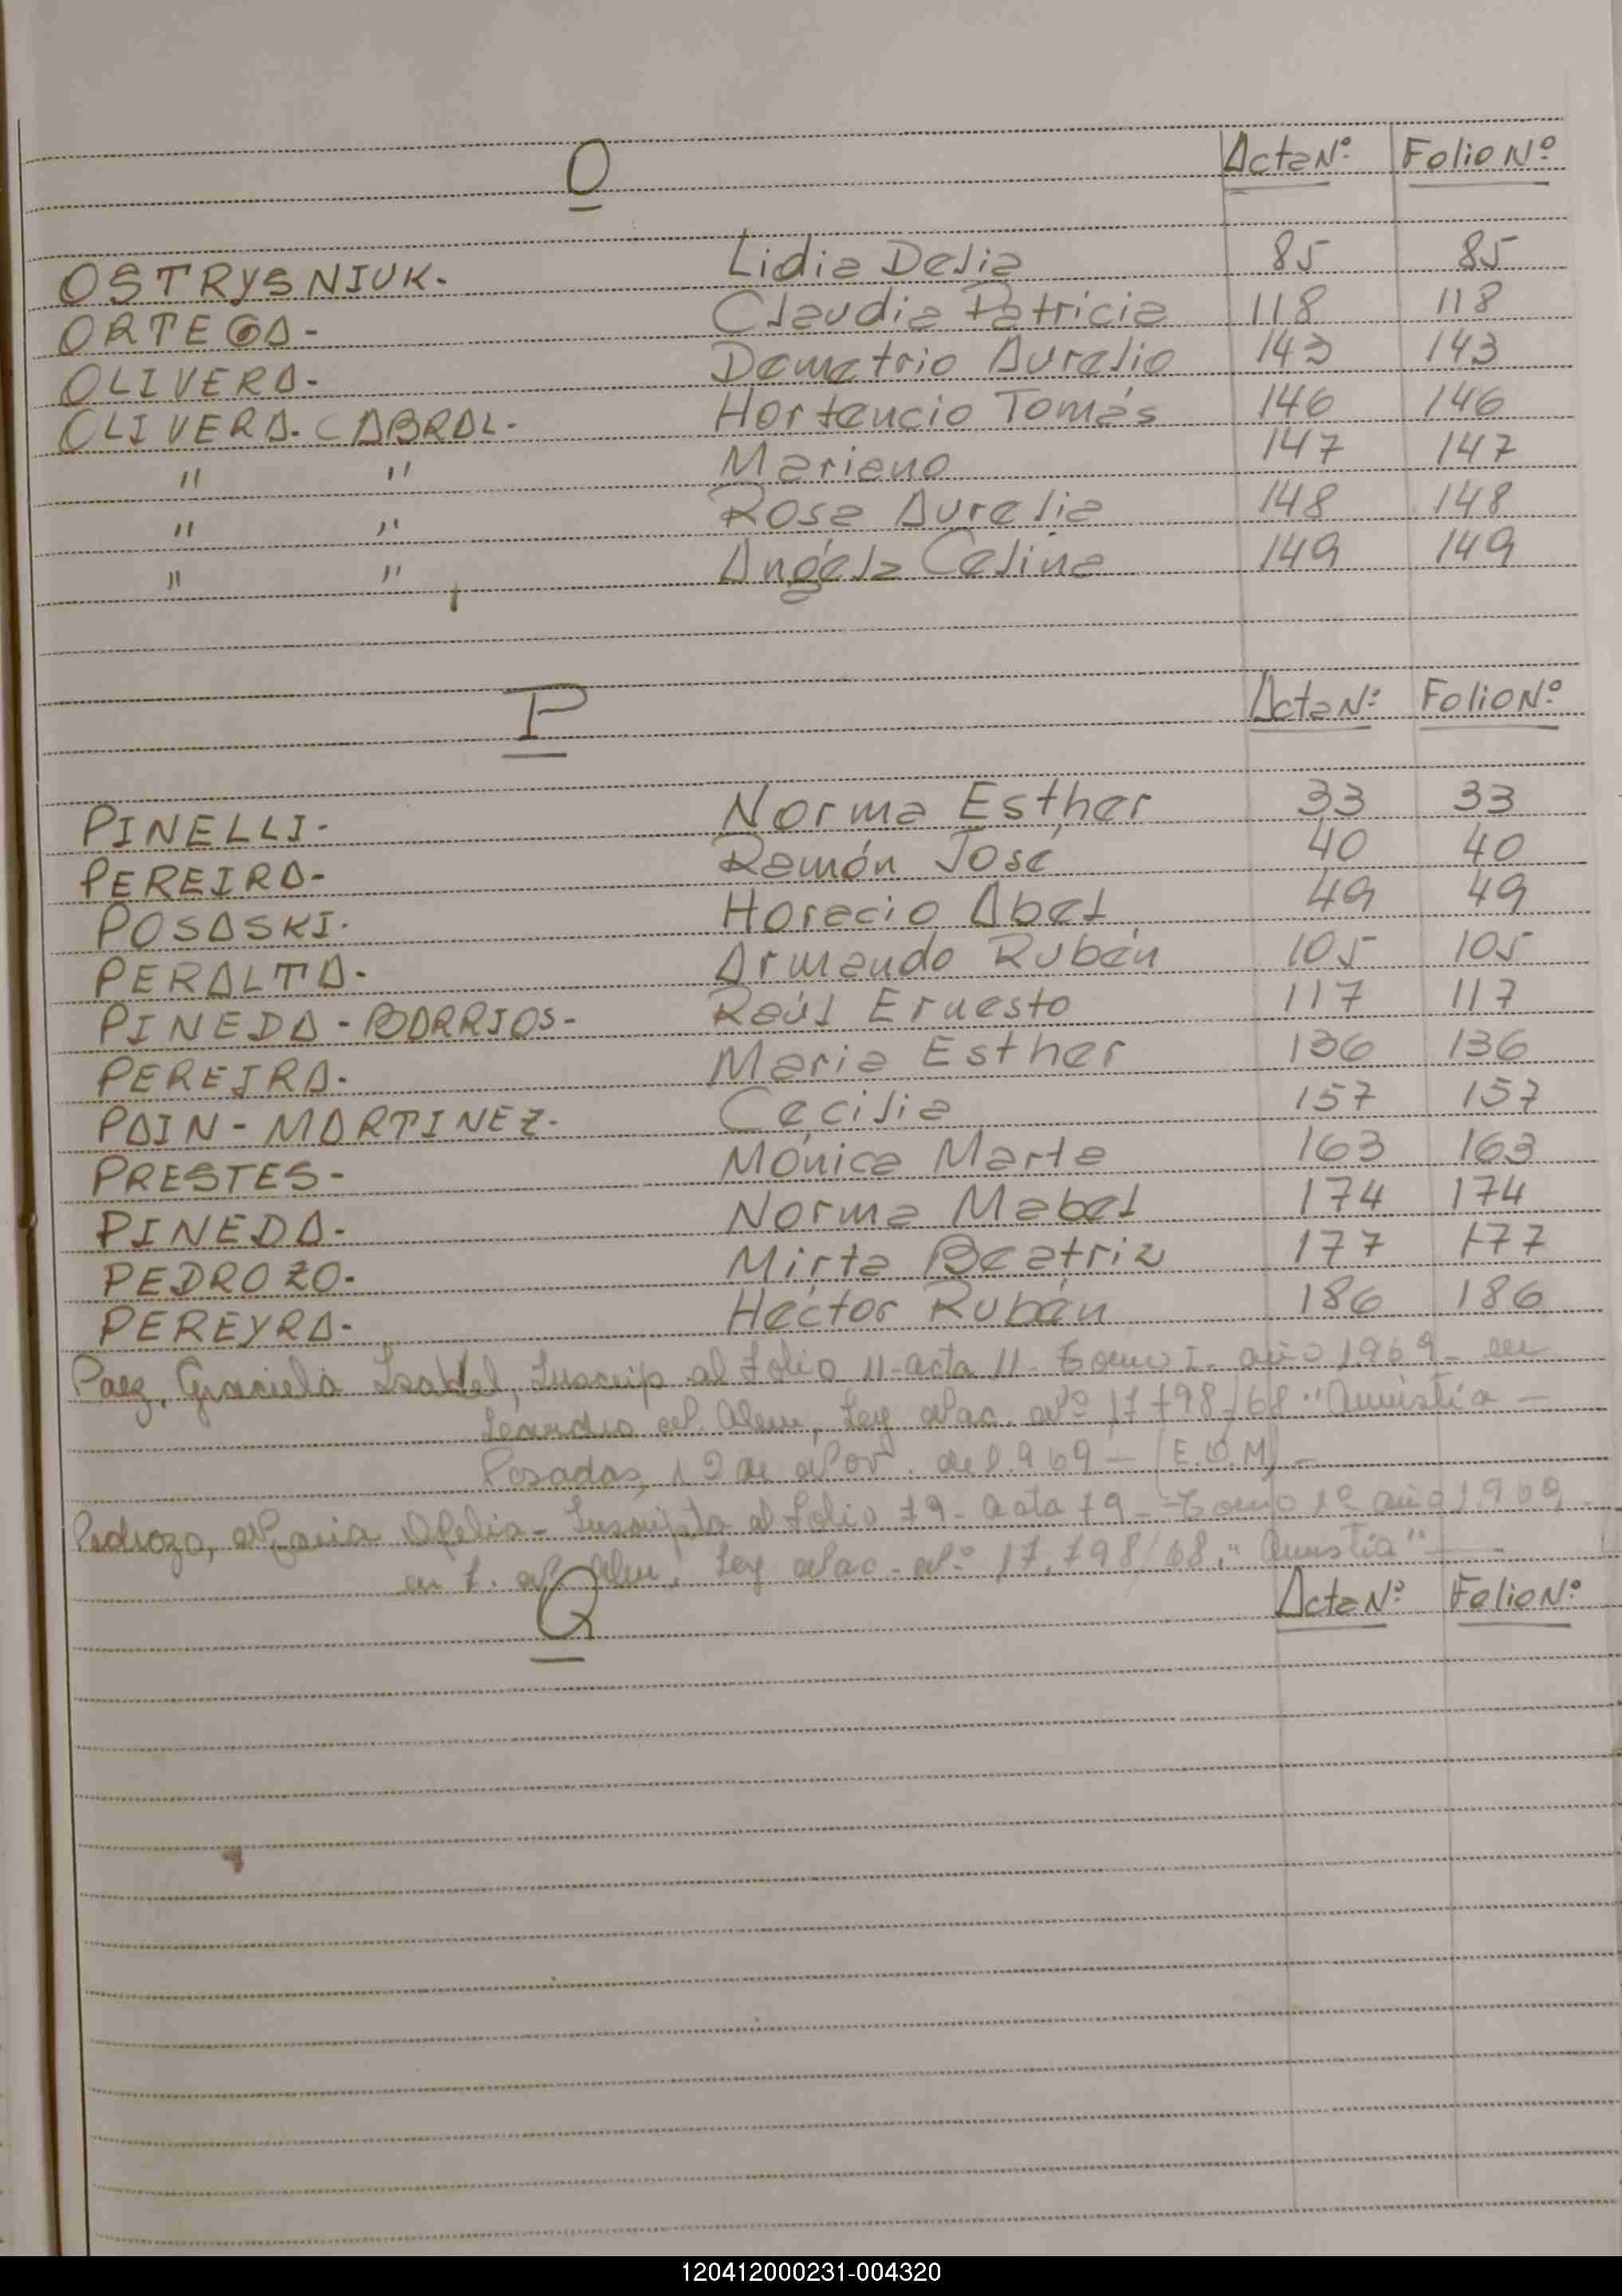 O Acta Nº Folio Nº
OSTRYSNIUK. Lidia Delia 85 85
ORTEGA- Claudia Patricia 118 118
OLIVERA- Demetrio Aurelio 143 143
OLIVERA-CABRAL- Hortencio Tomás 146 146
" " Mariano 147 147
" " Rosa Aurelia 148 148
" " Angéla Celina 149 149
P Acta Nº Folio Nº
PINELLI- Norma Esther 33 33
PEREIRA- Ramón José 40 40
POSASKI- Horacio Abel 49 49
PERALTA- Armando Rubén 105 105
PINEDA-BARRIOS- Raúl Ernesto 117 117
PEREIRA- Maria Esther 136 136
PAIN-MARTINEZ- Cecilia 157 157
PRESTES- Mónica Marta 163 163
PINEDA- Norma Mabel 174 174
PEDROZO- Mirta Beatriz 177 177
PEREYRA- Héctor Rubén 186 186
Paez, Graciela Isabel, Inscrip al folio 11-acta 11- Tomo I. año 1969- en
Leandro N. Alem, Ley Nac. Nº 17798/68 "Amnistia-
Posadas, 19 de Nov. de 1.969-(E.O.M)-
Pedrozo, Maria Ofelia- Inscripta al folio 79- acta 79- Tomo 1º año 1969-
en L. N. Alem, Ley Nac. Nº 17.798/68, "Amnistia"-
Q Acta Nº Folio Nº
120412000231-004320